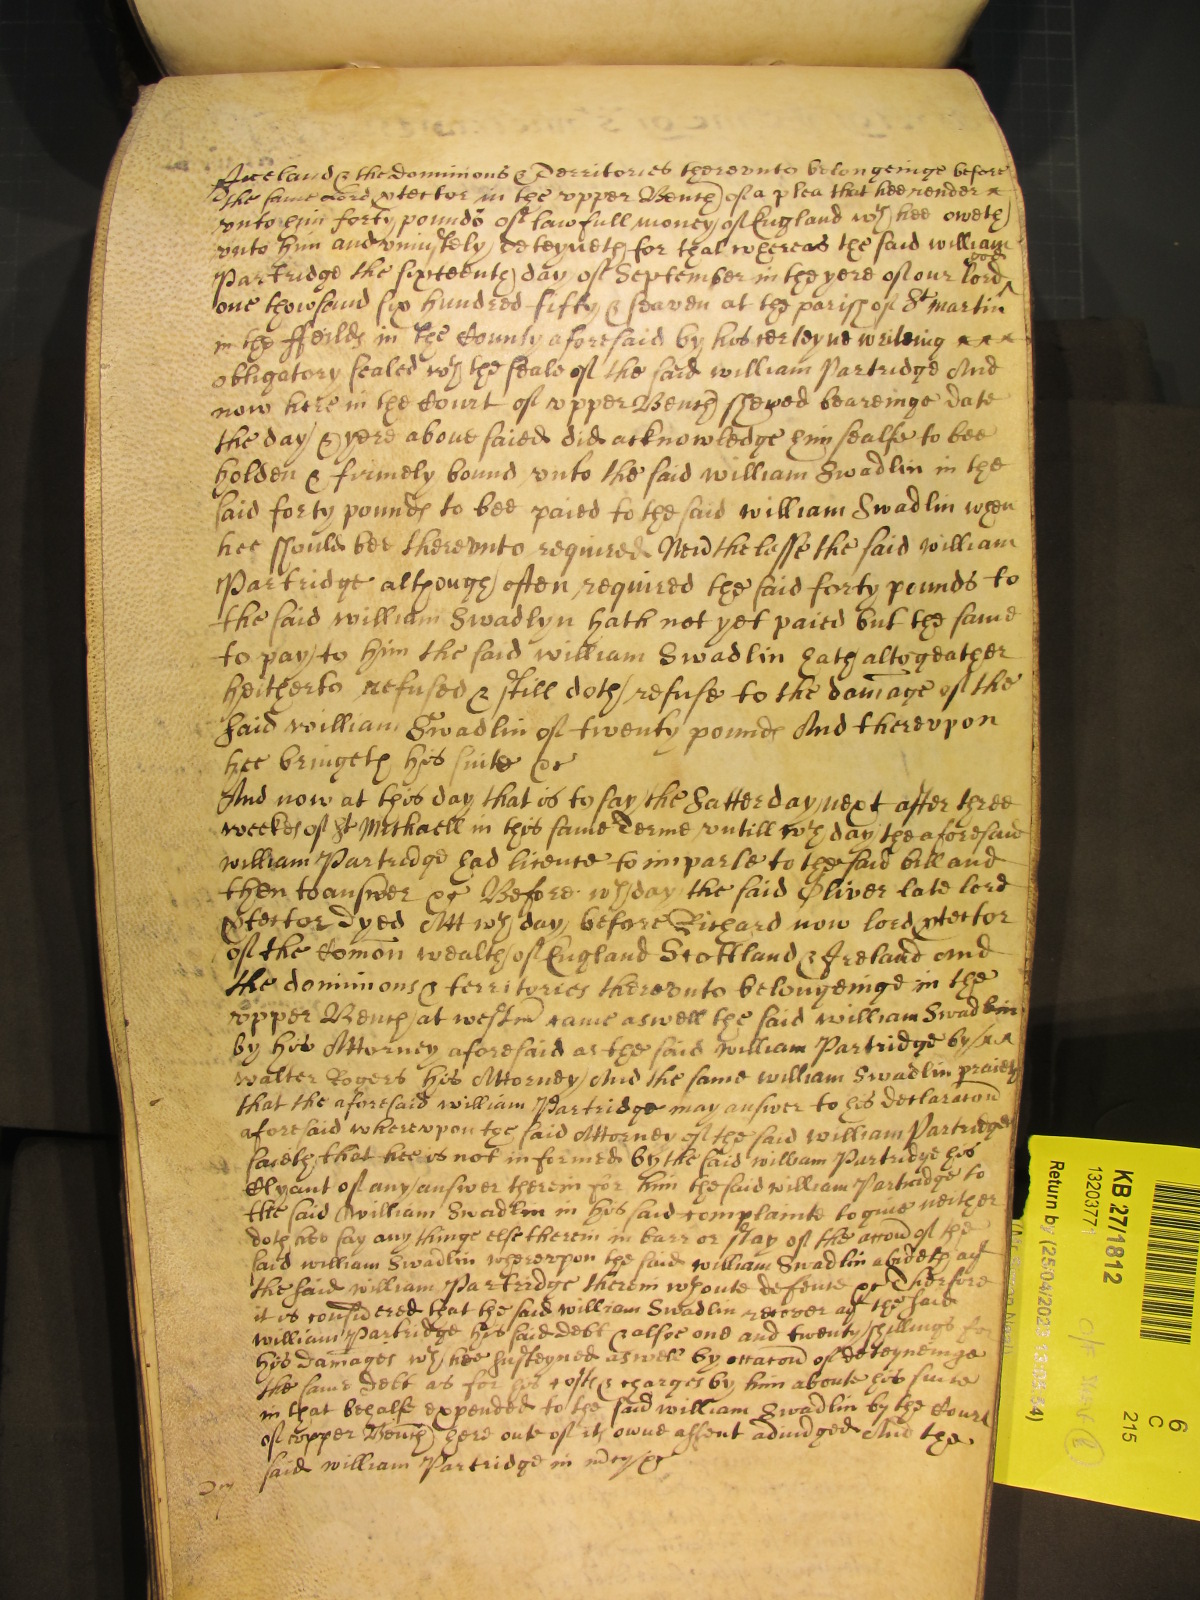 Ireland & the Dominions & Territories therevnto belongeinge before
the same Lord ptector in the vpper Bench of a plea that hee render
vnto him forty pounds of lawfull money of England wch hee oweth
vnto him and vniustely deteyneth for that whereas the said william
Partridge the sixteenth day of September in the yere of our Lord god
one thowsand six hundred fifty & seaven at the parish of St Martin
in the ffeilds in the County aforesaid by his certeyne writeing
obligatory sealed wth the seale of the said william Partridge And
now here in the Court of vpper Bench shewed beareinge date
the day & yere aboue saied did acknowledge himsealfe to bee
holden & firmely bound vnto the said william Swadlin in the
said forty pounds to bee paied to the said william Swadlin when
hee should bee therevnto required Nevthelesse the said william
Partridge although often required the said forty pounds to
the said william Swadlyn hath not yet paied but the same
to pay to him the said william Swadlin hath altogeather
heitherto refused & still doth refuse to the damage of the
said william Swadlin of twenty pounds And therevpon
hee bringeth his suite &c
And now at this day that is to say the Satterday next after three
weekes of St Michaell in this same Terme vntill wch day the aforesaid
william Partridge had licence to imparle to the said bill and
then to answer &c Before wch day the said Oliver late lord
ptector dyed Att wch day before Richard now lord ptector
of the Comon wealth of England Scottland & Ireland and
the dominions & territories therevnto belongeinge in the
vpper Bench at westmr came aswell the said william Swadlin
by his Attorney aforesaid as the said william Partridge by
walter Rogers his Attorney And the same william Swadlin praieth
that the aforesaid william Partridge may answer to his declaracon
aforesaid wherevpon the said Attorney of the said william Partridge
saieth that hee is not informed by the said william Partridge his
Clyant of any answer therein for him the said william Partridge to
the said william Swadlin in his said complainte to give neither
doth hee say any thinge else therein in barr or stay of the accon of the
said william Swadlin wherevpon the said william Swadlin abideth agt
the said william Partridge therein wthoute defence &c Therfore
it is considered that the said william Swadlin recover agt the said
william Partridge his said debt & alsoe one and twenty shillings for
his damages wch hee susteyned aswell by occacon of deteyneinge
the same debt as for his costs & charges by him aboute his suite
in that behalfe expended to the said william Swadlin by the Court
of vpper Bench here oute of its owne assent adiudged And the
said william Partridge in mcy &c
mcy
KB 27/1812
1320377
Return by (25/04/202
6
C
215